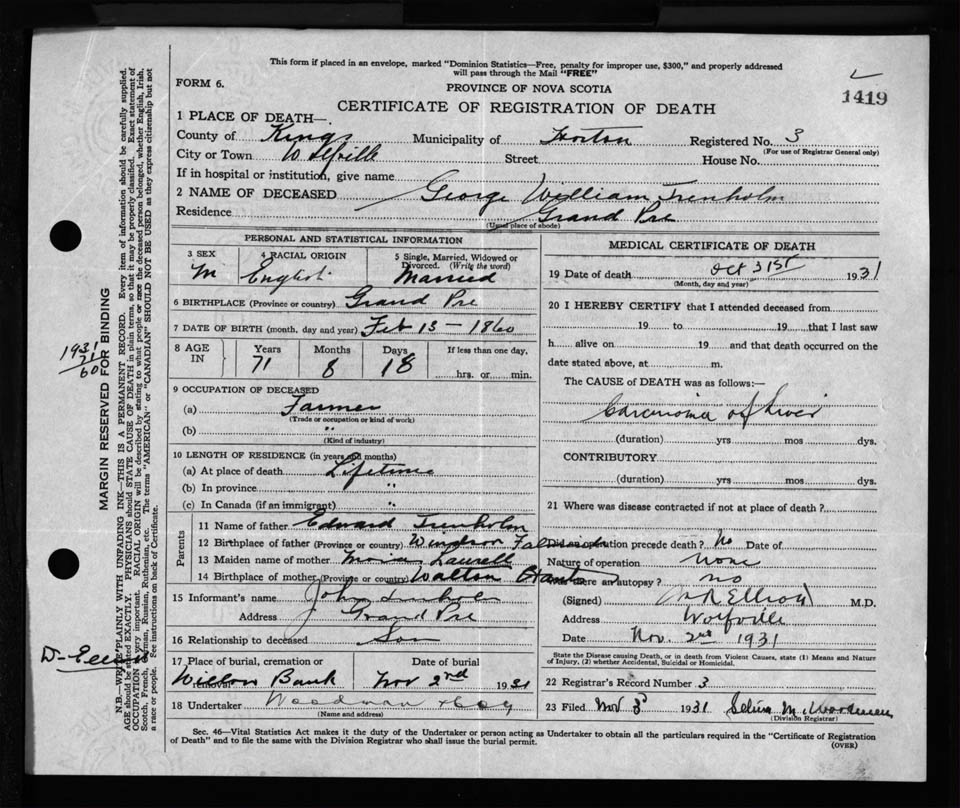 This form if placed in an envelope, marked "Dominion Statistics—Free, penalty for improper use, $300," and properly addressed
will pass through the Mail "FREE"
FORM 6.
PROVINCE OF NOVA SCOTIA
1419
CERTIFICATE OF REGISTRATION OF DEATH
1 PLACE OF DEATH—
County of Kings Municipality of Horton Registered No. 3
(For use of Registrar General only)
City or Town Wolfville Street House No.
If in hospital or institution, give name
2 NAME OF DECEASED George William Trenholm
Residence Grand Pre
(Usual place of abode)
PERSONAL AND STATISTICAL INFORMATION
3 SEX 4 RACIAL ORIGIN 5 Single, Married, Widowed or
Divorced. (Write the word)
M English Married
6 BIRTHPLACE (Province or country) Grand Pre
7 DATE OF BIRTH (month, day and year) Feb 13 - 1860
8 AGE IN Years Months Days If less than one day,
71 8 18 hrs. or min.
9 OCCUPATION OF DECEASED
(a) Farmer
(Trade or occupation or kind of work)
(b) "
(Kind of industry)
10 LENGTH OF RESIDENCE (in years and months)
(a) At place of death Lifetime
(b) In province "
(c) In Canada (if an immigrant) "
Parents
11 Name of father Edward Trenholm
12 Birthplace of father (Province or country) Windsor
13 Maiden name of mother
14 Birthplace of mother (Province or country) Walton Hants
15 Informant's name John Trenholm
Address Grand Pre
16 Relationship to deceased Son
17 Place of burial, cremation or removal Date of burial
Willow Bank Nov 2nd 1931
18 Undertaker Woodman & Coy
(Name and address)
MEDICAL CERTIFICATE OF DEATH
19 Date of death Oct 31st 1931
(Month, day and year)
20 I HEREBY CERTIFY that I attended deceased from
19 to 19 that I last saw
h alive on 19 and that death occurred on
date stated above, at m.
The CAUSE OF DEATH was as follows:—
Carcinoma of Liver
(duration) yrs mos dys.
CONTRIBUTORY
(duration) yrs mos dys.
21 Where was disease contracted if not at place of death?
Did an operation precede death? No Date of
Nature of operation None
Was there an autopsy? no
(Signed) M R Elliott M.D.
Address Wolfville
Date Nov. 2nd 1931
State the Disease causing Death, or in death from Violent Causes, state (1) Means and Nature
of Injury, (2) whether Accidental, Suicidal or Homicidal.
22 Registrar's Record Number 3
23 Filed Nov 3 1931 Selina M. Woodman
(Division Registrar)
Sec. 46—Vital Statistics Act makes it the duty of the Undertaker or person acting as Undertaker to obtain all the particulars required in the "Certificate of Registration
of Death" and to file the same with the Division Registrar who shall issue the burial permit.
(OVER)
MARGIN RESERVED FOR BINDING
N.B.—WRITE PLAINLY WITH UNFADING INK—THIS IS A PERMANENT RECORD. Every item of information should be carefully supplied.
AGE should be stated EXACTLY. PHYSICIANS should STATE CAUSE OF DEATH in plain terms, so that it may be properly classified. Exact statement of
OCCUPATION is very important. RACIAL ORIGIN will be described by stating to what people or race the deceased person belonged, whether English, Irish,
Scotch, French, German, Russian, Ruthenian, etc. The terms "AMERICAN" or "CANADIAN" SHOULD NOT BE USED as they express citizenship but not
a race or people. See instructions on back of Certificate.
1931
71
60